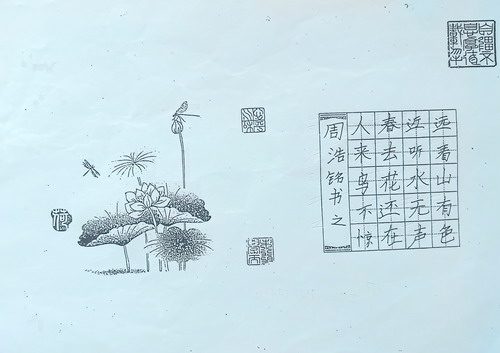 远看山有色
近听水无声
春去花还在
人来鸟不惊
周浩铭书之